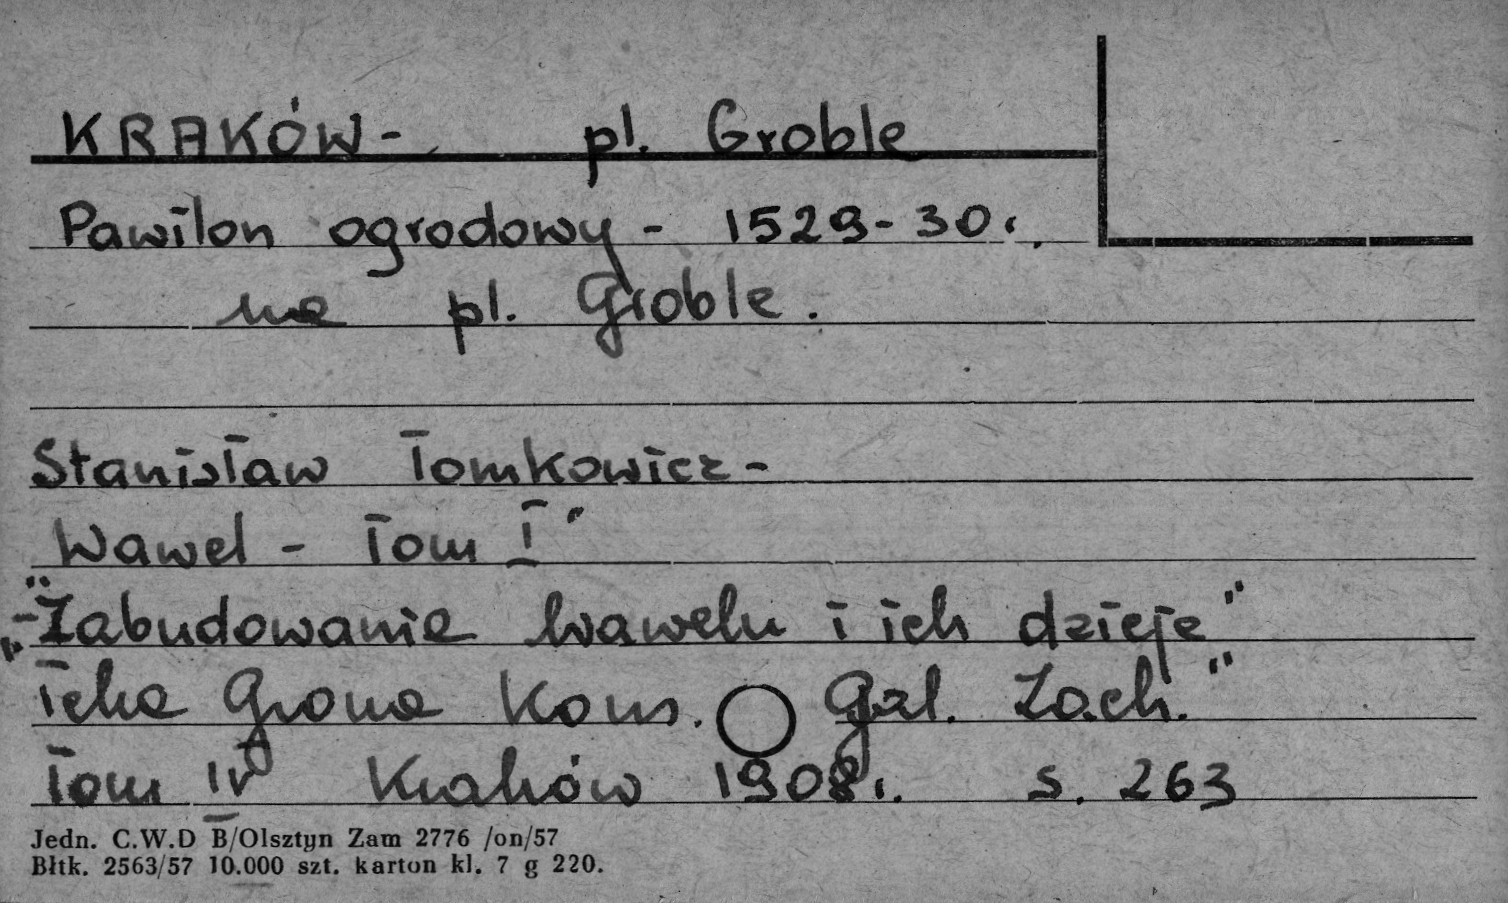 KRAKÓW - pl. Groble
Pawilon ogrodowy - 1529-30r.
na pl. Groble.
Stanisław Tomkowicz -
Wawel - Tom I"
"Zabudowanie Wawelu i ich dzieje"
„Teka Grona Kons. Gal. Zach."
Tom IV Kraków 1908r. s. 263
Jedn. C.W.D B/Olsztyn Zam 2776 /on/57
Błtk. 2563/57 10.000 szt. karton kl. 7 g 220.